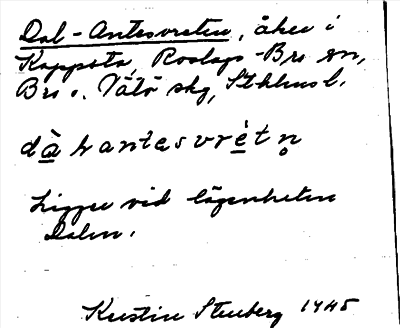 Dal-Antesvreten, åker i
Kappsta, Roslags-Bro sn,
Bro o. Vätö skg, Sthlms l.
dạ̀ḷantesvrẹ́tṇ
Ligger vid lägenheten
Dalen.
Kerstin Stenberg 1945